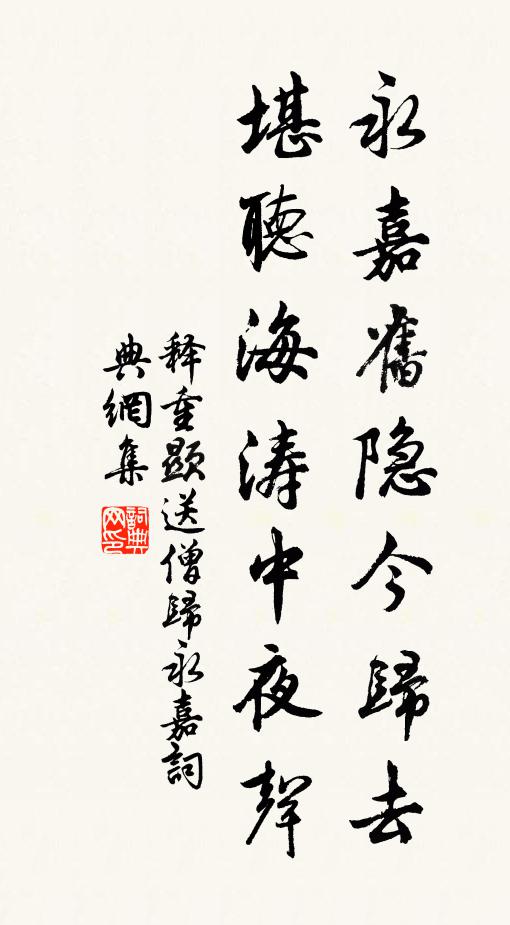 永嘉舊隐今歸去
堪聽海涛中夜聲
释重显送僧歸永嘉詞
典網集
詞典
网印